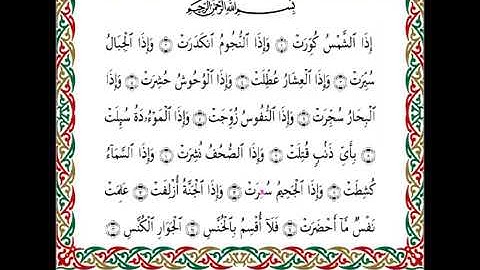 بِسْمِ اللَّهِ الرَّحْمَٰنِ الرَّحِيمِ
إِذَا ٱلشَّمْسُ كُوِّرَتْ ۝ وَإِذَا ٱلنُّجُومُ ٱنكَدَرَتْ ۝ وَإِذَا ٱلْجِبَالُ
سُيِّرَتْ ۝ وَإِذَا ٱلْعِشَارُ عُطِّلَتْ ۝ وَإِذَا ٱلْوُحُوشُ حُشِرَتْ ۝ وَإِذَا
ٱلْبِحَارُ سُجِّرَتْ ۝ وَإِذَا ٱلنُّفُوسُ زُوِّجَتْ ۝ وَإِذَا ٱلْمَوْءُۥدَةُ سُئِلَتْ
۝ بِأَيِّ ذَنۢبٍ قُتِلَتْ ۝ وَإِذَا ٱلصُّحُفُ نُشِرَتْ ۝ وَإِذَا ٱلسَّمَآءُ
كُشِطَتْ ۝ وَإِذَا ٱلْجَحِيمُ سُعِّرَتْ ۝ وَإِذَا ٱلْجَنَّةُ أُزْلِفَتْ ۝ عَلِمَتْ
نَفْسٌ مَّآ أَحْضَرَتْ ۝ فَلَآ أُقْسِمُ بِٱلْخُنَّسِ ۝ ٱلْجَوَارِ ٱلْكُنَّسِ ۝